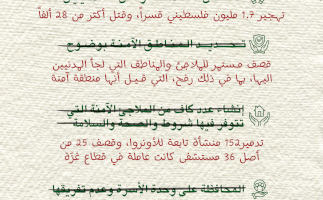 تهجير 1.7 مليون فلسطيني قسراً، وقتل أكثر من 28 ألفاً
تحديد المناطق الآمنة بوضوح
قصف مستمر للملاجئ والمناطق التي لجأ المدنيين
اليها، بما في ذلك رفح، التي قيل أنها منطقة آمنة
إنشاء عدد كاف من الملاجئ الآمنة التي
تتوفر فيها شروط والصحة والسلامة
تدمير152 منشأة تابعة للأونروا، وقصف 25 من
أصل 36 مستشفى كانت عاملة في قطاع غزة
المحافظة على وحدة الأسرة وعدم تفريقها